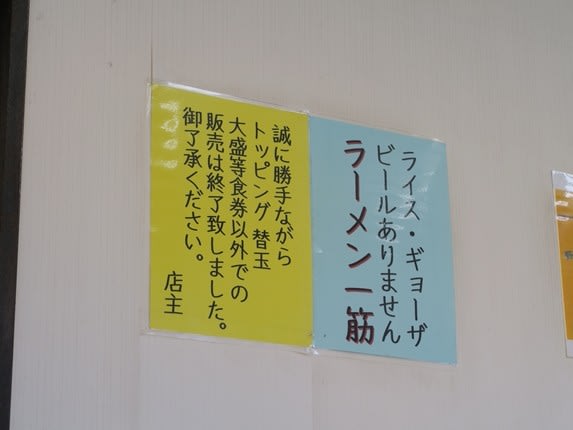 ライス・ギョーザ
ビールありません
ラーメン一筋
誠に勝手ながら
トッピング 替玉
大盛等食券以外での
販売は終了致しました。
御了承ください。
店主